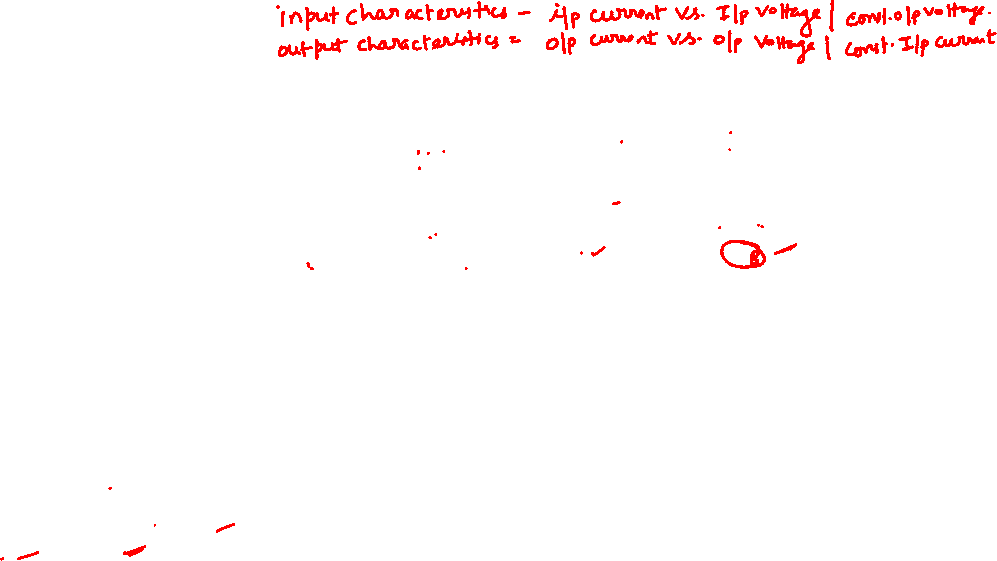 input characteristics - i/p current v.s. I/p voltage | const. o/p voltage.
output characteristics = o/p current v.s. o/p voltage | const. I/p current